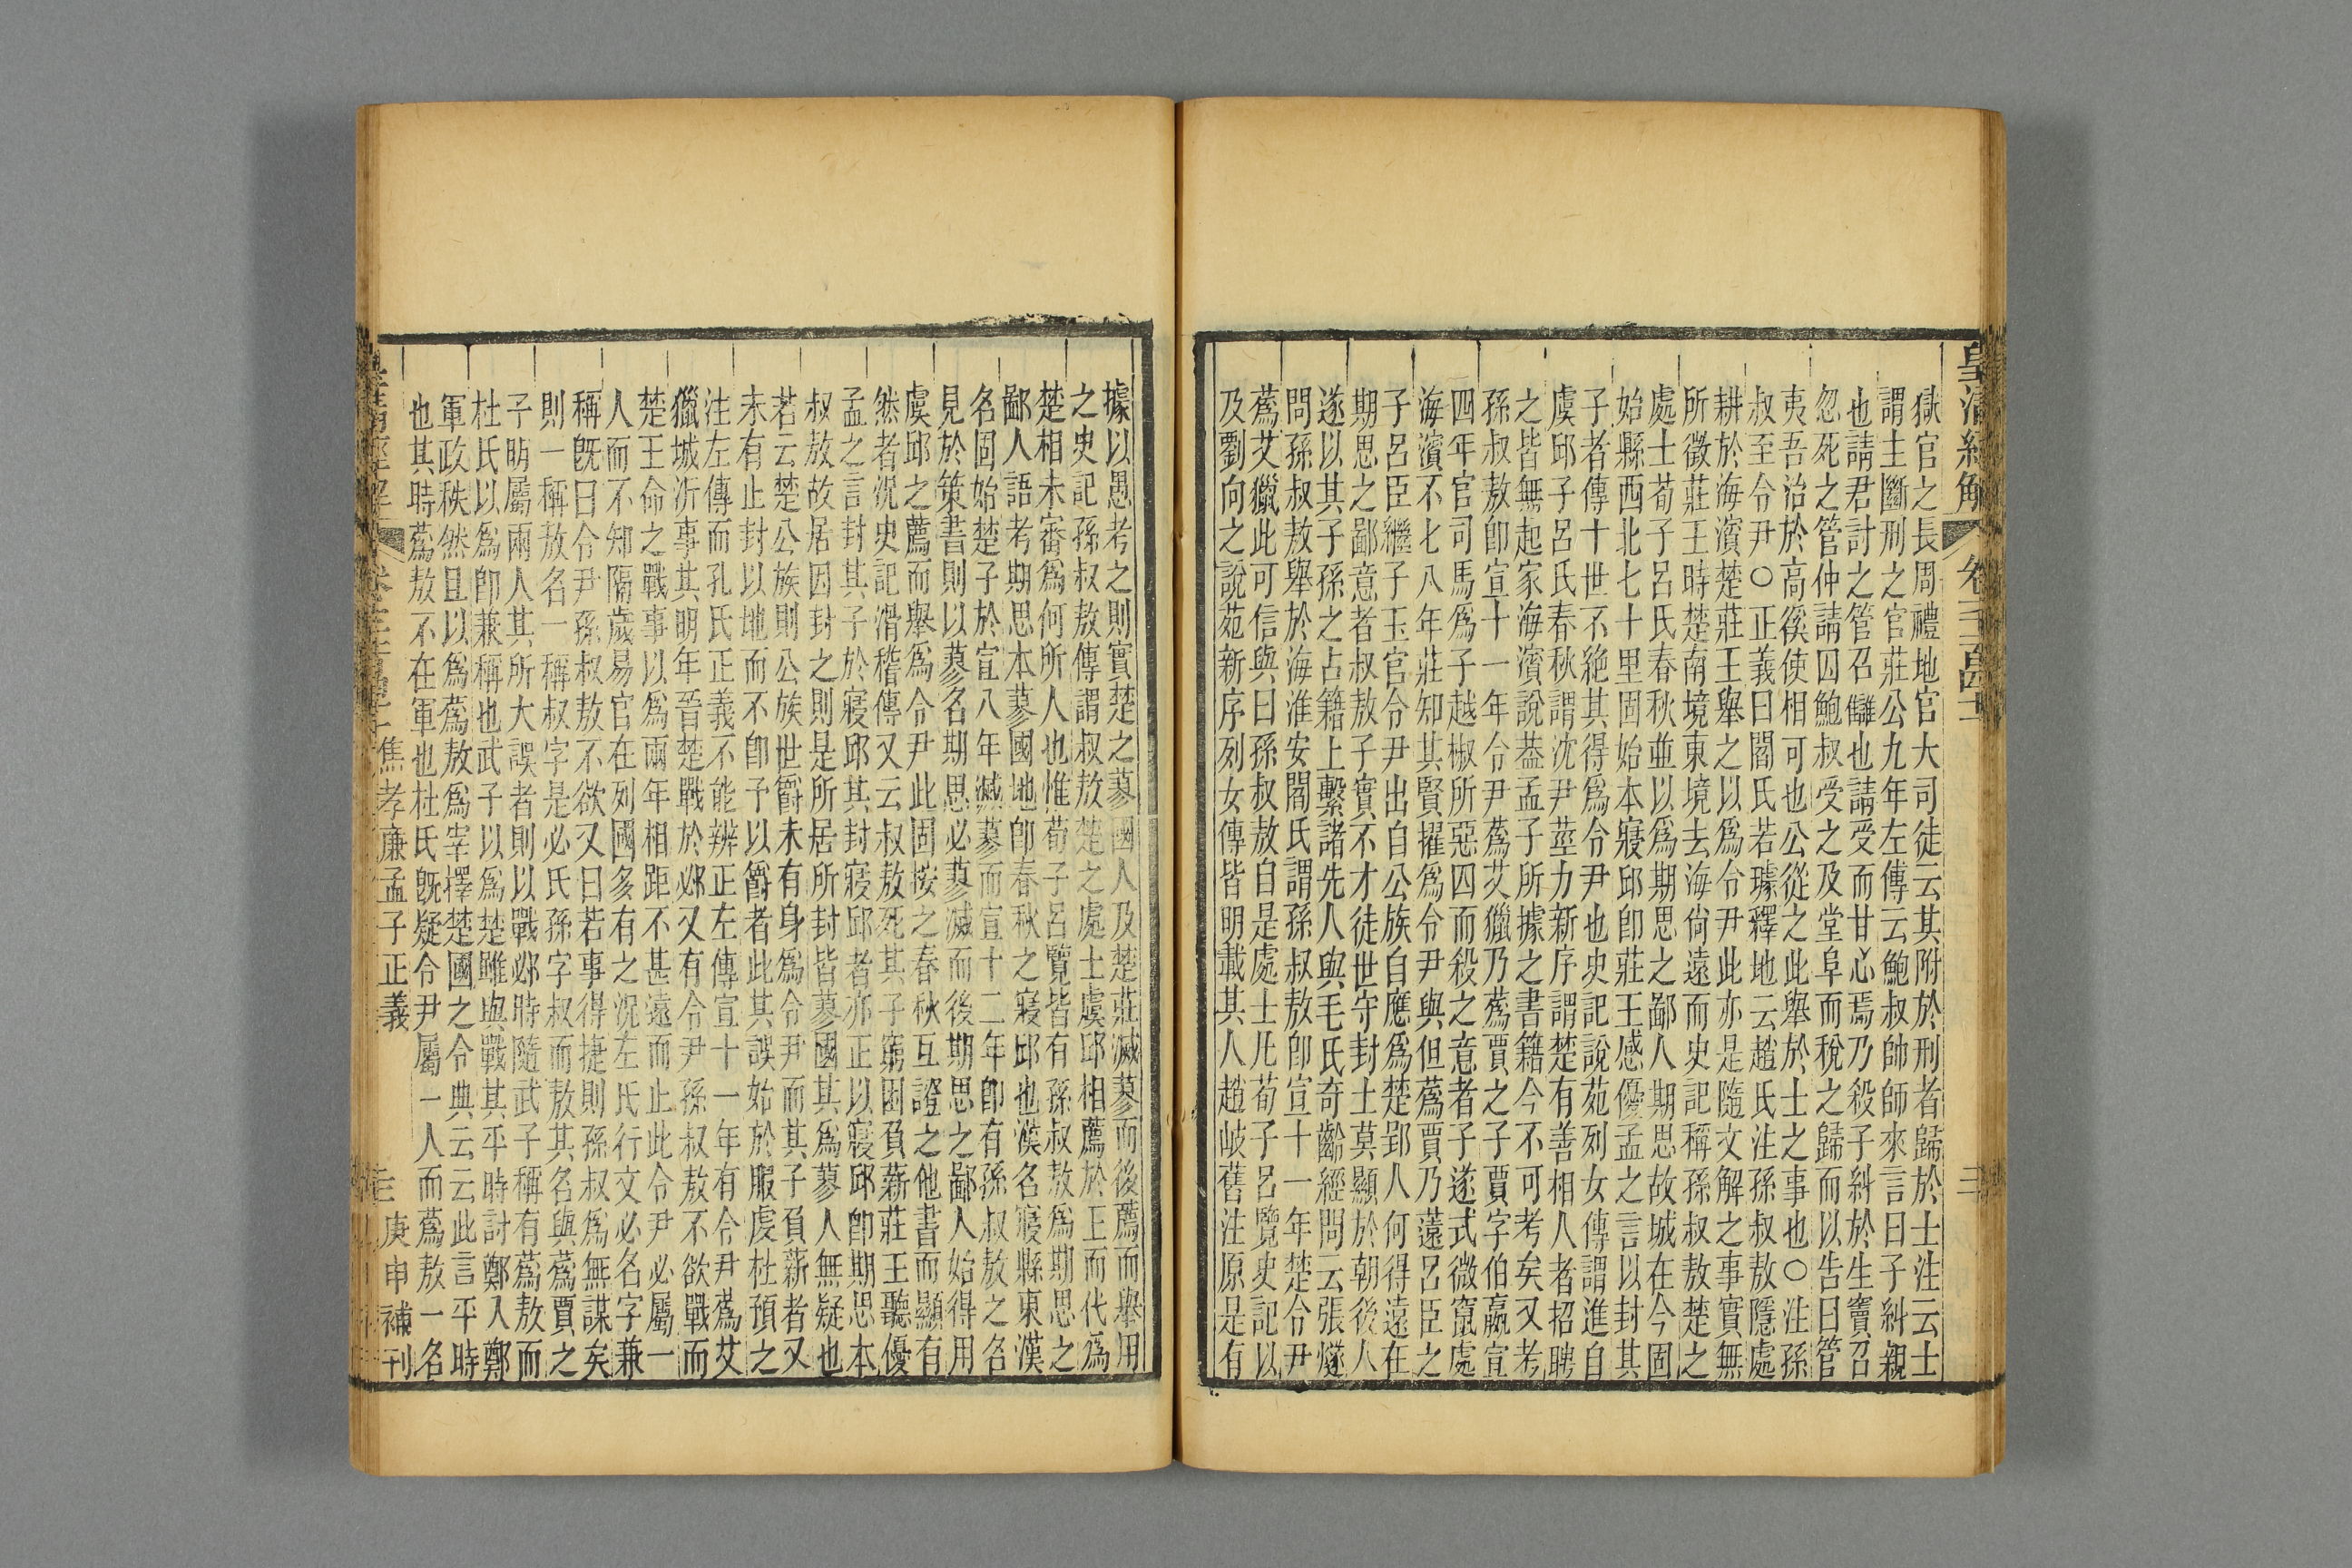 皇清經解
獄官之長周禮地官大司徒云其附於刑者歸於士注云士
謂主斷刑之官莊公九年左傳云鮑叔帥師來言曰子糾親
也請君討之管召讎也請受而甘心焉乃殺子糾於生竇召
忽死之管仲請囚鮑叔受之及堂阜而稅之歸而以告曰管
夷吾治於高徯使相可也公從之此舉於士之事也○注孫
叔至令尹○正義曰閻氏若璩釋地云趙氏注孫叔敖隱處
耕於海濱楚莊王舉之以為令尹此亦是隨文解之事實無
所徵莊王時楚南境東境去海尚遠而史記稱孫叔敖楚之
處士荀子呂氏春秋並以為期思之鄙人期思故城在今固
始縣西北七十里固始本寢邱卽莊王感優孟之言以封其
子者傳十世不絶其得為令尹也史記說苑列女傳謂進自
虞邱子呂氏春秋謂沈尹莖力新序謂楚有善相人者招聘
之皆無起家海濱說葢孟子所據之書籍今不可考矣又考
孫叔敖卽宣十一年令尹蒍艾獵乃蒍賈之子賈字伯嬴宣
四年官司馬為子越椒所惡囚而殺之意者子遂式微竄處
海濱不七八年莊知其賢擢為令尹與但蒍賈乃薳呂臣之
子呂臣繼子玉官令尹出自公族自應為楚郢人何得遠在
期思之鄙意者叔敖子實不才徒世守封土莫顯於朝後人
遂以其子孫之占籍上繫諸先人與毛氏奇齡經問云張燧
問孫叔敖舉於海淮安閻氏謂孫叔敖卽宣十一年楚令尹
蒍艾獵此可信與曰孫叔敖自是處士凡荀子呂覽史記以
及劉向之說苑新序列女傳皆明載其人趙岐舊注原是有
據以愚考之則實楚之蓼國人及楚莊滅蓼而後薦而舉用
之史記孫叔敖傳謂叔敖楚之處士虞邱相薦於王而代為
楚相未審為何所人也惟荀子呂覽皆有孫叔敖為期思之
鄙人語考期思本蓼國地卽春秋之寢邱也漢名寢縣東漢
名固始楚子於宣八年滅蓼而宣十二年卽有孫叔敖之名
見於策書則以蓼名期思必蓼滅而後期思之鄙人始得用
虞邱之薦而舉為令尹此固按之春秋互證之他書而顯有
然者況史記滑稽傳又云叔敖死其子窮困負薪莊王聽優
孟之言封其子於寢邱其封寢邱者亦正以寢邱卽期思本
叔敖故居因封之則是所居所封皆蓼國其為蓼人無疑也
若云楚公族則公族世爵未有身為令尹而其子負薪者又
未有止封以地而不卽予以爵者此其誤始於服虔杜預之
注左傳而孔氏正義不能辨正左傳宣十一年有令尹蒍艾
獵城沂事其明年晉楚戰於邲又有令尹孫叔敖不欲戰而
楚王命之戰事以為兩年相距不甚遠而止此令尹必屬一
人而不知隔歲易官在列國多有之況左氏行文必名字兼
稱旣曰令尹孫叔敖不欲又曰若事得捷則孫叔為無謀矣
則一稱敖名一稱叔字是必氏孫字叔而敖其名與蒍賈之
子明屬兩人其所大誤者則以戰邲時隨武子稱有蒍敖而
杜氏以為卽兼稱也武子以為楚雖與戰其平時討鄭入鄭
軍政秩然且以為蒍敖為宰擇楚國之令典云云此言平時
也其時蒍敖不在軍也杜氏旣疑令尹屬一人而蒍敖一名
焦孝廉孟子正義
庚申補刊